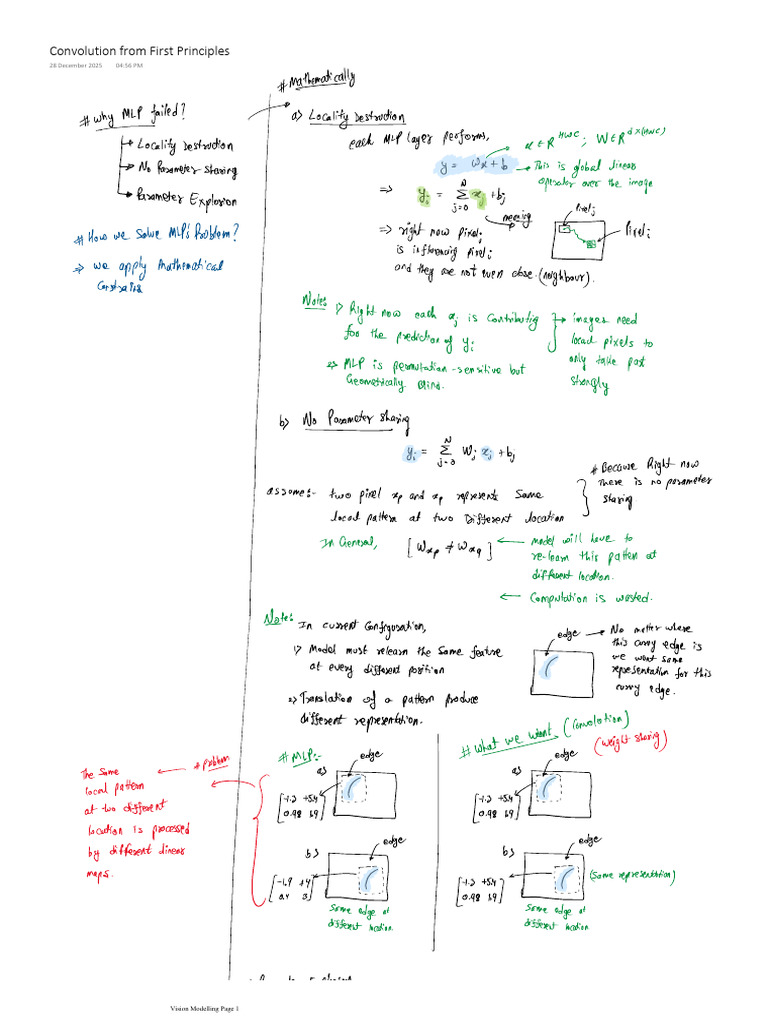 Convolution from First Principles
28 December 2025 04:56 PM
# Why MLP failed?
→ Locality Destruction
→ No Parameter Sharing
→ Parameter Explosion
# How we Solve MLP's Problem?
⇒ We apply Mathematical
Constrains
# Mathematically
a) Locality Destruction
each MLP layer performs,
y = Wx + b
x ∈ R^HWC ; W ∈ R^d×(HWC)
→ This is global linear
operator over the image
⇒ y_i = Σ_{j=0}^{N} x_j + b_j
meaning
⇒ right now Pixel_j
is influencing pixel_i
and they are not even close.(neighbour).
Pixel_j
Pixel_i
Note: 1) Right now each x_j is Contributig
for the prediction of y_i
→ images need
local pixels to
only take part
strongly
2) MLP is permutation-sensitive but
Geometrically Blind.
b) No Parameter Sharing
y_i = Σ_{j=0}^{N} W_j x_j + b_j
# Because Right now
There is no parameter
Sharing
assume:- two pixel x_p and x_q represents Same
local pattern at two Different location
In General, [ W_xp ≠ W_xq ]
← model will have to
re-learn this patten at
different location.
← Computation is wasted.
Note: In current Configuration,
1) Model must relearn the Same feature
at every different position
2) Translation of a pattern produce
different representation.
edge → No matter where
this curvy edge is
we want same
representation for this
curvy edge.
# MLP:-
edge
a)
[-1.2 +5.4
0.98 1.9]
b)
edge
[-1.9 +4
0.4 3]
Same edge at
different location.
# problem
The Same
local pattern
at two different
location is processed
by different linear
maps.
# What we want (Convolution)
(weight sharing)
edge
a)
[-1.2 +5.4
0.98 1.9]
b)
edge
[-1.2 +5.4
0.98 1.9]
(Same representation)
Same edge at
different location
Vision Modelling Page 1